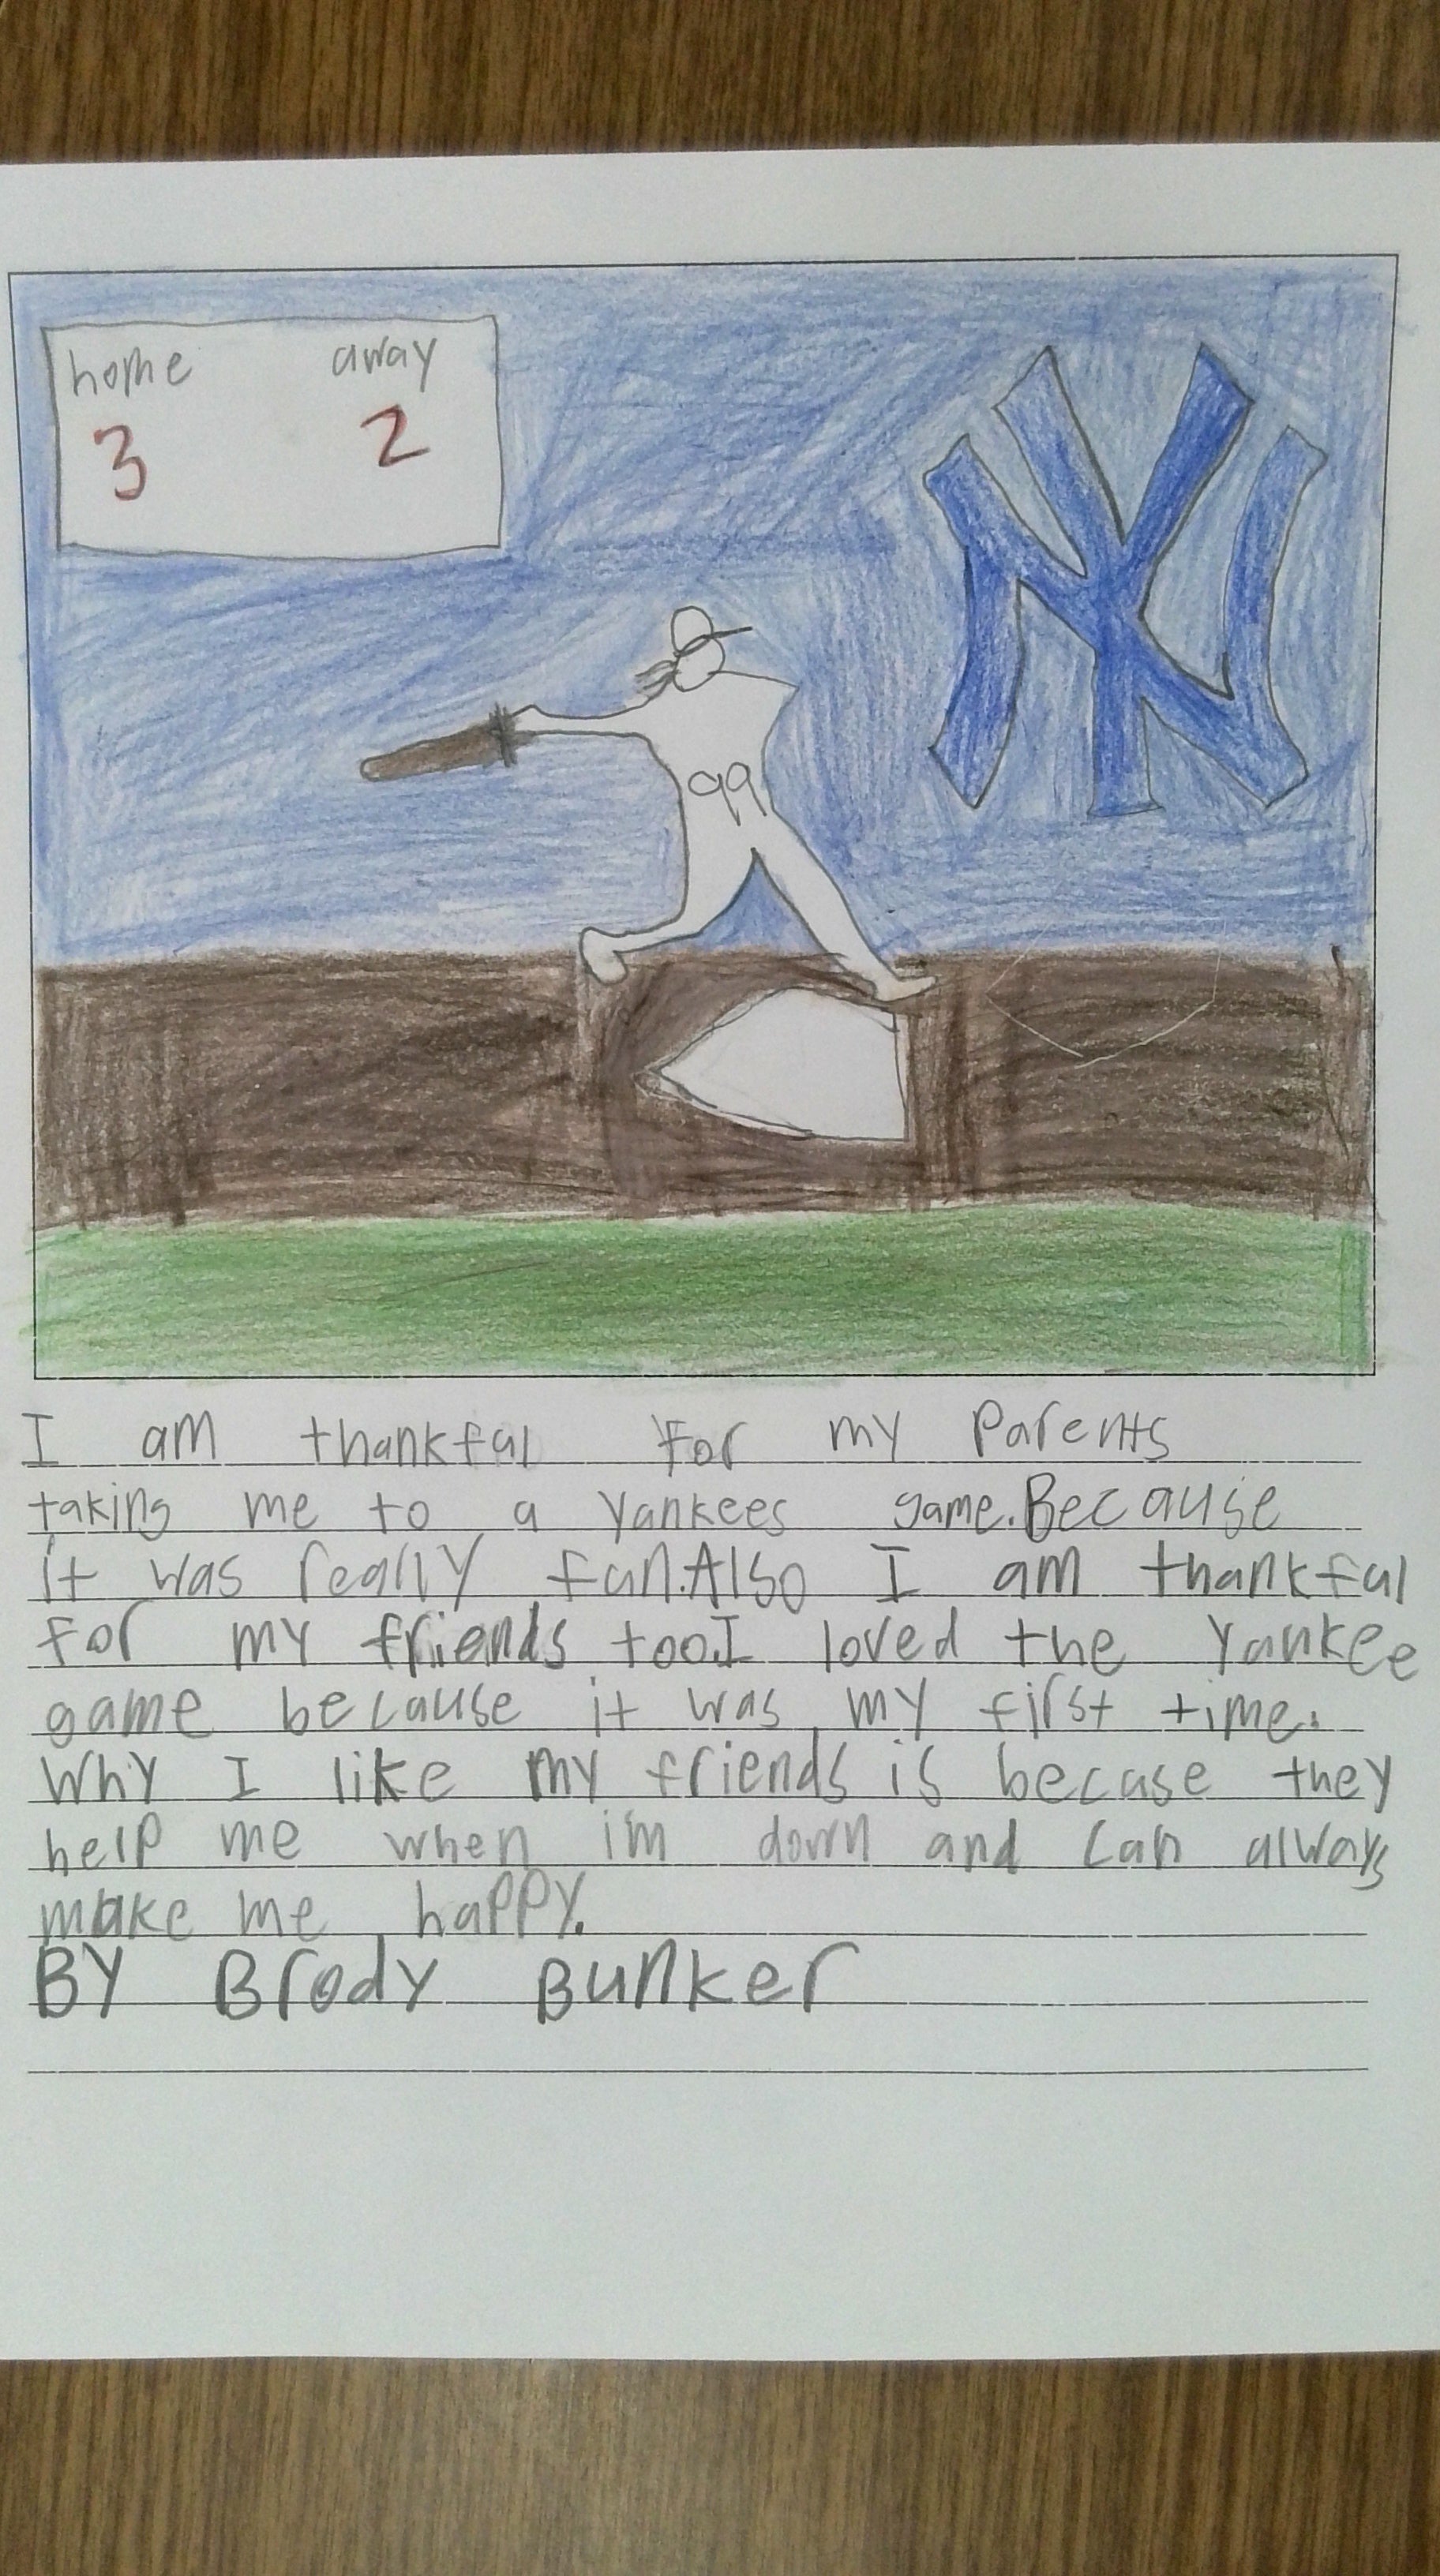 home away
3 2
NY
99
I am thankful for my Parents
taking me to a Yankees game. Because
it was really fun. Also I am thankful
for my friends too. I loved the Yankee
game because it was my first time.
Why I like my friends is becuase they
help me when im down and can always
make me happy.
BY Brody Bunker